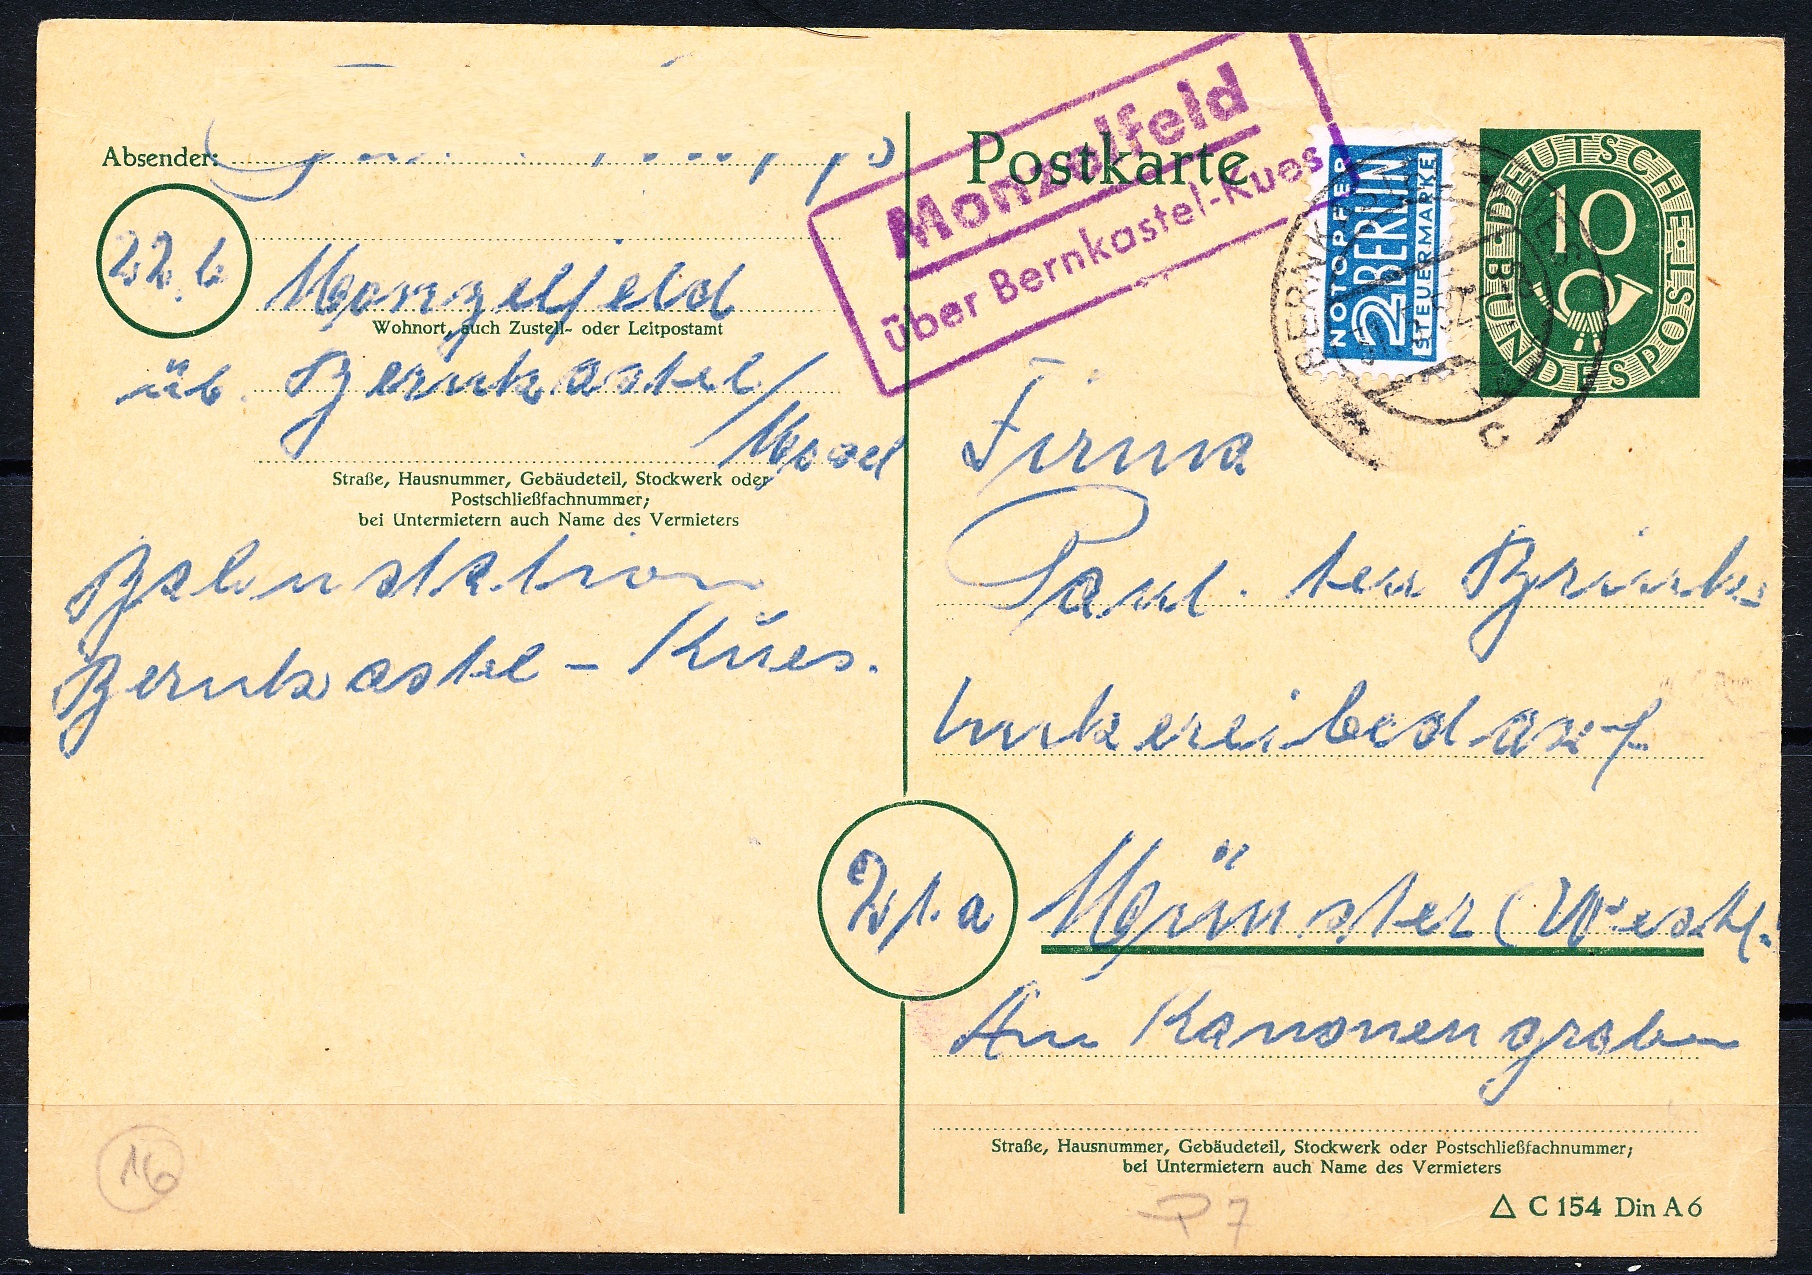 Absender:
22.b
Monzelfeld
Wohnort, auch Zustell- oder Leitpostamt
üb. Bernkastel/
Mosel
Straße, Hausnummer, Gebäudeteil, Stockwerk oder
Postschließfachnummer;
bei Untermietern auch Name des Vermieters
Bahnstation
Bernkastel-Kues.
16
Monzelfeld
über Bernkastel-Kues
Postkarte
NOTOPFER
2 BERLIN
STEUERMARKE
DEUTSCHE BUNDESPOST
10
BERNKASTEL-KUES
c
Firma
Paul ten Brink
Imkereibedarf
21.a
Münster (Westf.
Am Kanonengraben
Straße, Hausnummer, Gebäudeteil, Stockwerk oder Postschließfachnummer;
bei Untermietern auch Name des Vermieters
△ C 154 Din A6
P 7